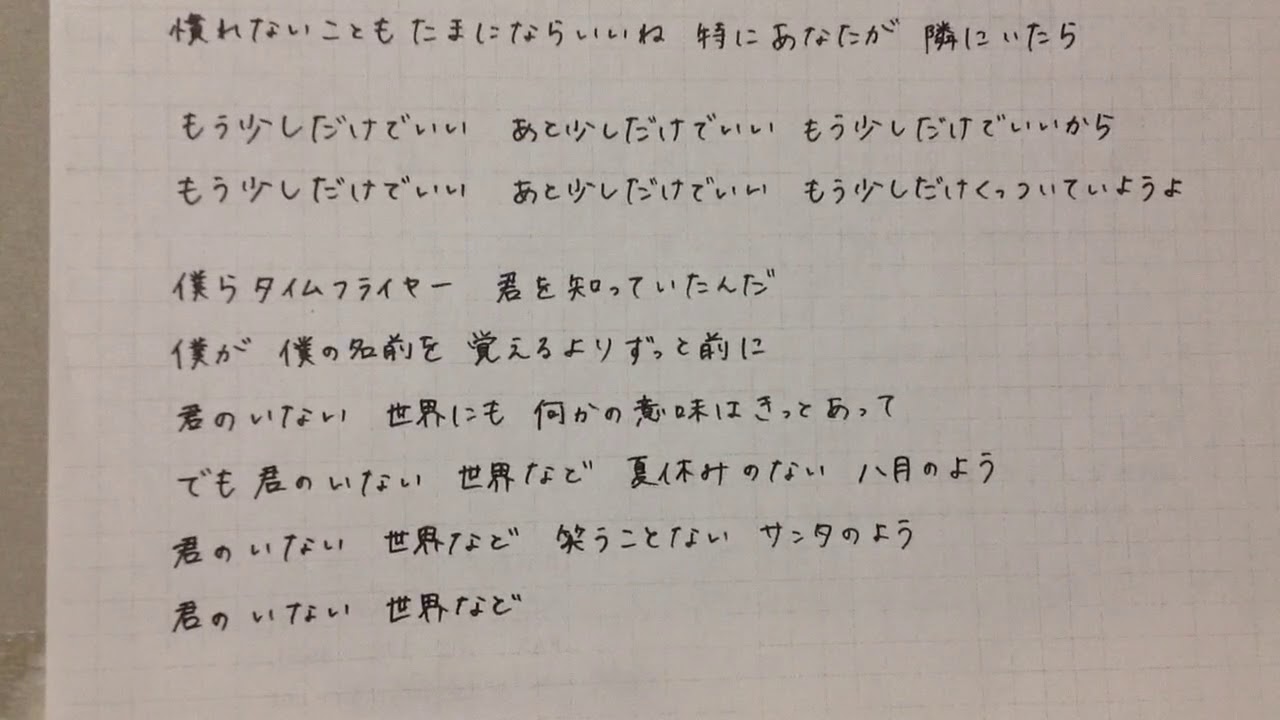 慣れないこともたまにならいいね 特にあなたが 隣にいたら
もう少しだけでいい あと少しだけでいい もう少しだけでいいから
もう少しだけでいい あと少しだけでいい もう少しだけくっついていようよ
僕らタイムフライヤー 君を知っていたんだ
僕が 僕の名前を 覚えるよりずっと前に
君のいない 世界にも 何かの意味はきっとあって
でも君のいない 世界など 夏休みのない 八月のよう
君のいない 世界など 笑うことない サンタのよう
君のいない 世界など